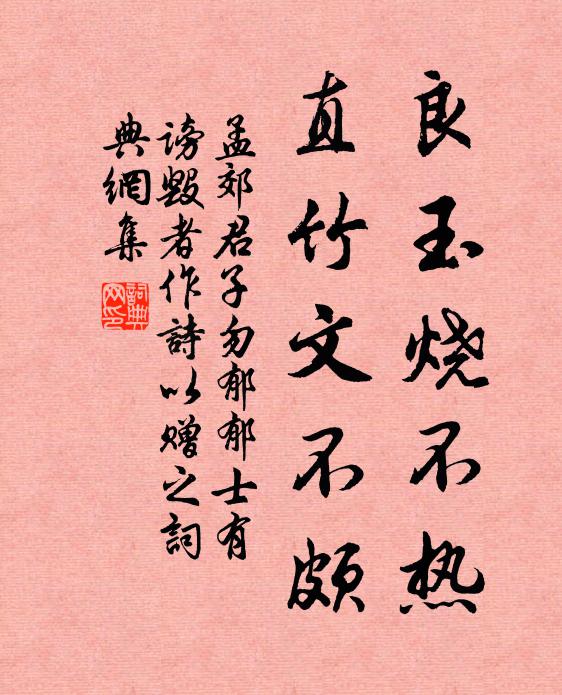 良玉烧不热
直竹文不颇
孟郊君子勿郁郁士有
謗毀者作詩以赠之詞
典網集
詞典
网印